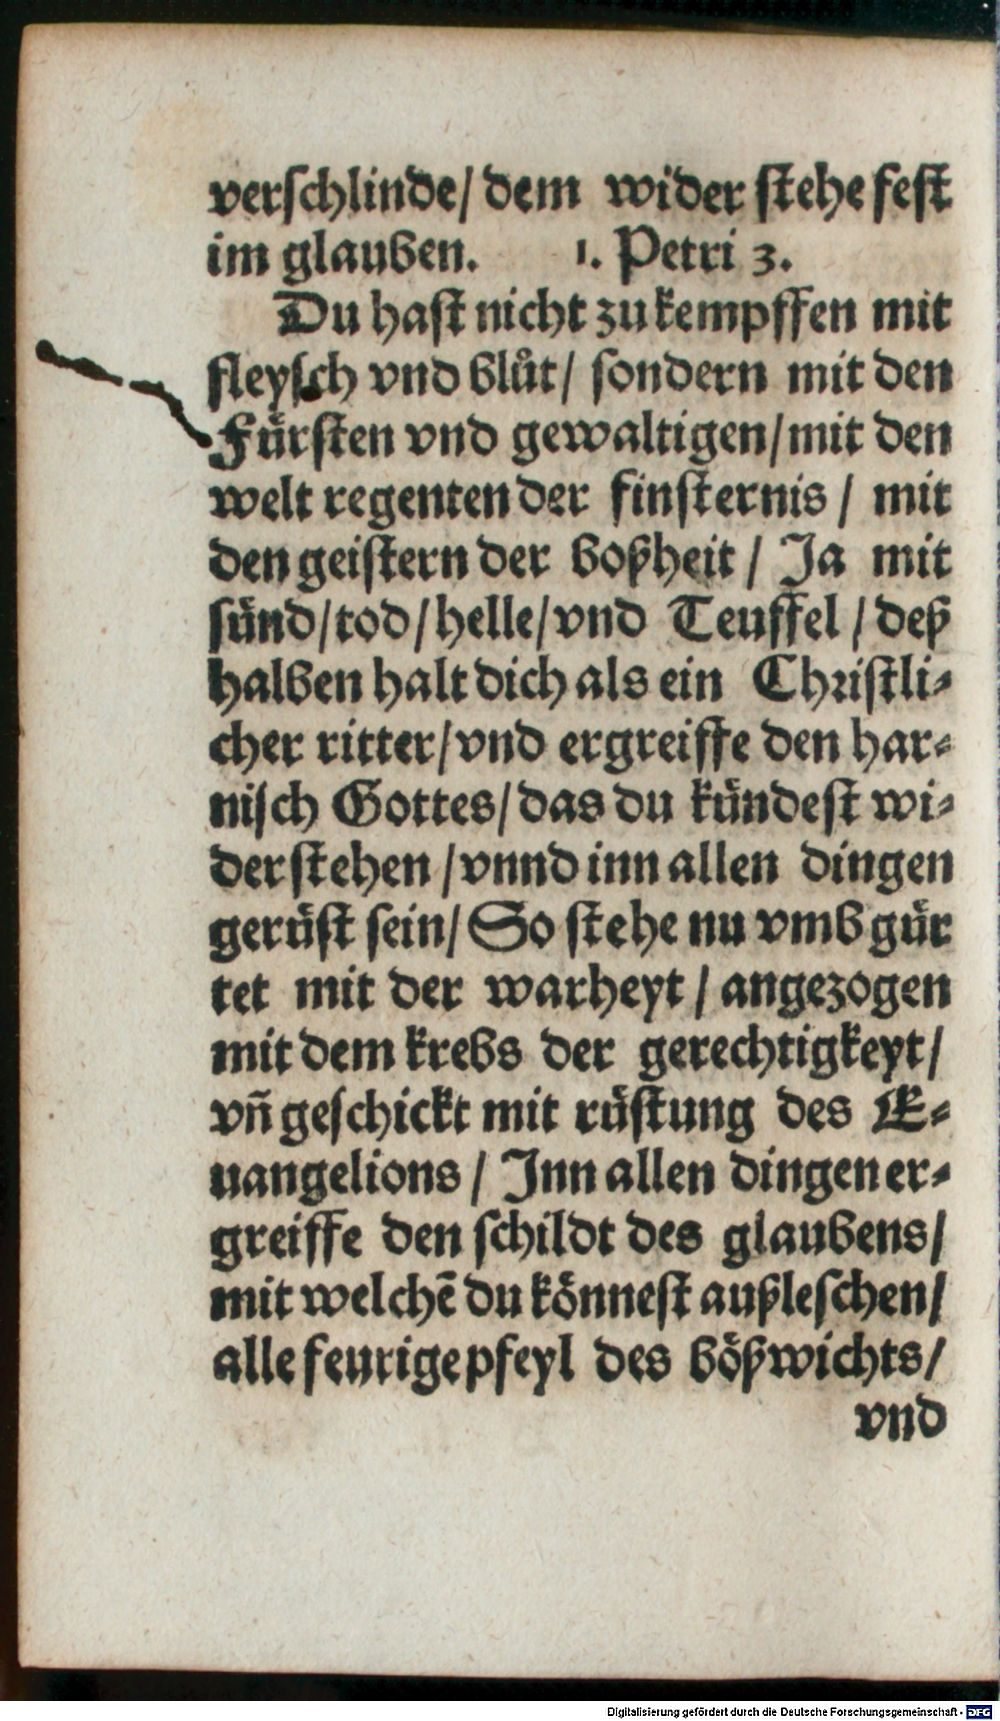 verſchlinde/ dem wider ſtehe feſt
im glauben. 1. Petri 3.
Du haſt nicht zu kempffen mit
fleyſch vnd blůt/ ſondern mit den
Fürſten vnd gewaltigen/ mit den
welt regenten der finſternis / mit
den geiſtern der boßheit / Ja mit
ſünd/ tod/ helle/ vnd Teuffel / deß
halben halt dich als ein Chriſtli⸗
cher ritter/ vnd ergreiffe den har⸗
niſch Gottes/ das du kündeſt wi⸗
der ſtehen / vnnd inn allen dingen
gerüſt ſein/ So ſtehe nu vmb gür
tet mit der warheyt / angezogen
mit dem krebs der gerechtigkeyt/
vñ geſchickt mit rüſtung des E⸗
uangelions / Inn allen dingen er⸗
greiffe den ſchildt des glaubens/
mit welchē du könneſt außleſchen/
alle feurige pfeyl des bößwichts/
vnd
Digitalisierung gefördert durch die Deutsche Forschungsgemeinschaft - DFG